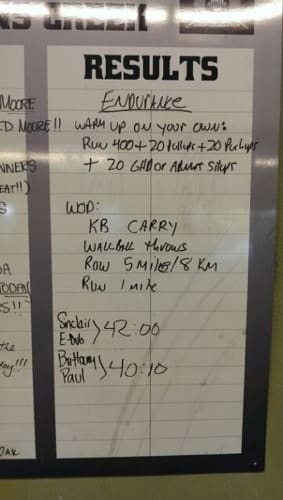 NS CREEK
RESULTS
ENDURANCE
MOORE
D MOORE!!
WARM UP ON YOUR OWN:
RUN 400 + 20 Pullups + 20 Pushups
+ 20 GHD or ABMAT Situps
NNERS
EAT!!)
S
WOD:
KB CARRY
WALLBALL throws
ROW 5 Miles/8 KM
RUN 1 mile
DA
TODAY
S!!
Sinclair
E-Dub
42:00
the
ay!!!
Brittany
Paul
40:10
OAK